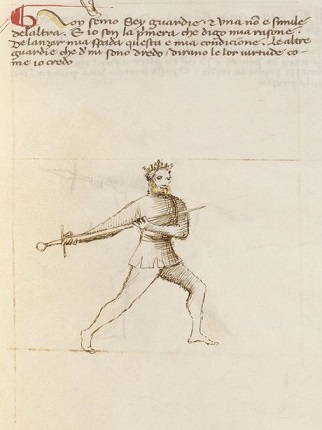 Noy semo Sey guardie e una non e simile
de laltra. E io son la primera che digo mia rasone.
De lanzar mia spada questa e mia condicione. le altre
guardie che d mi sono dredo dirano le lor virtude co-
me io credo